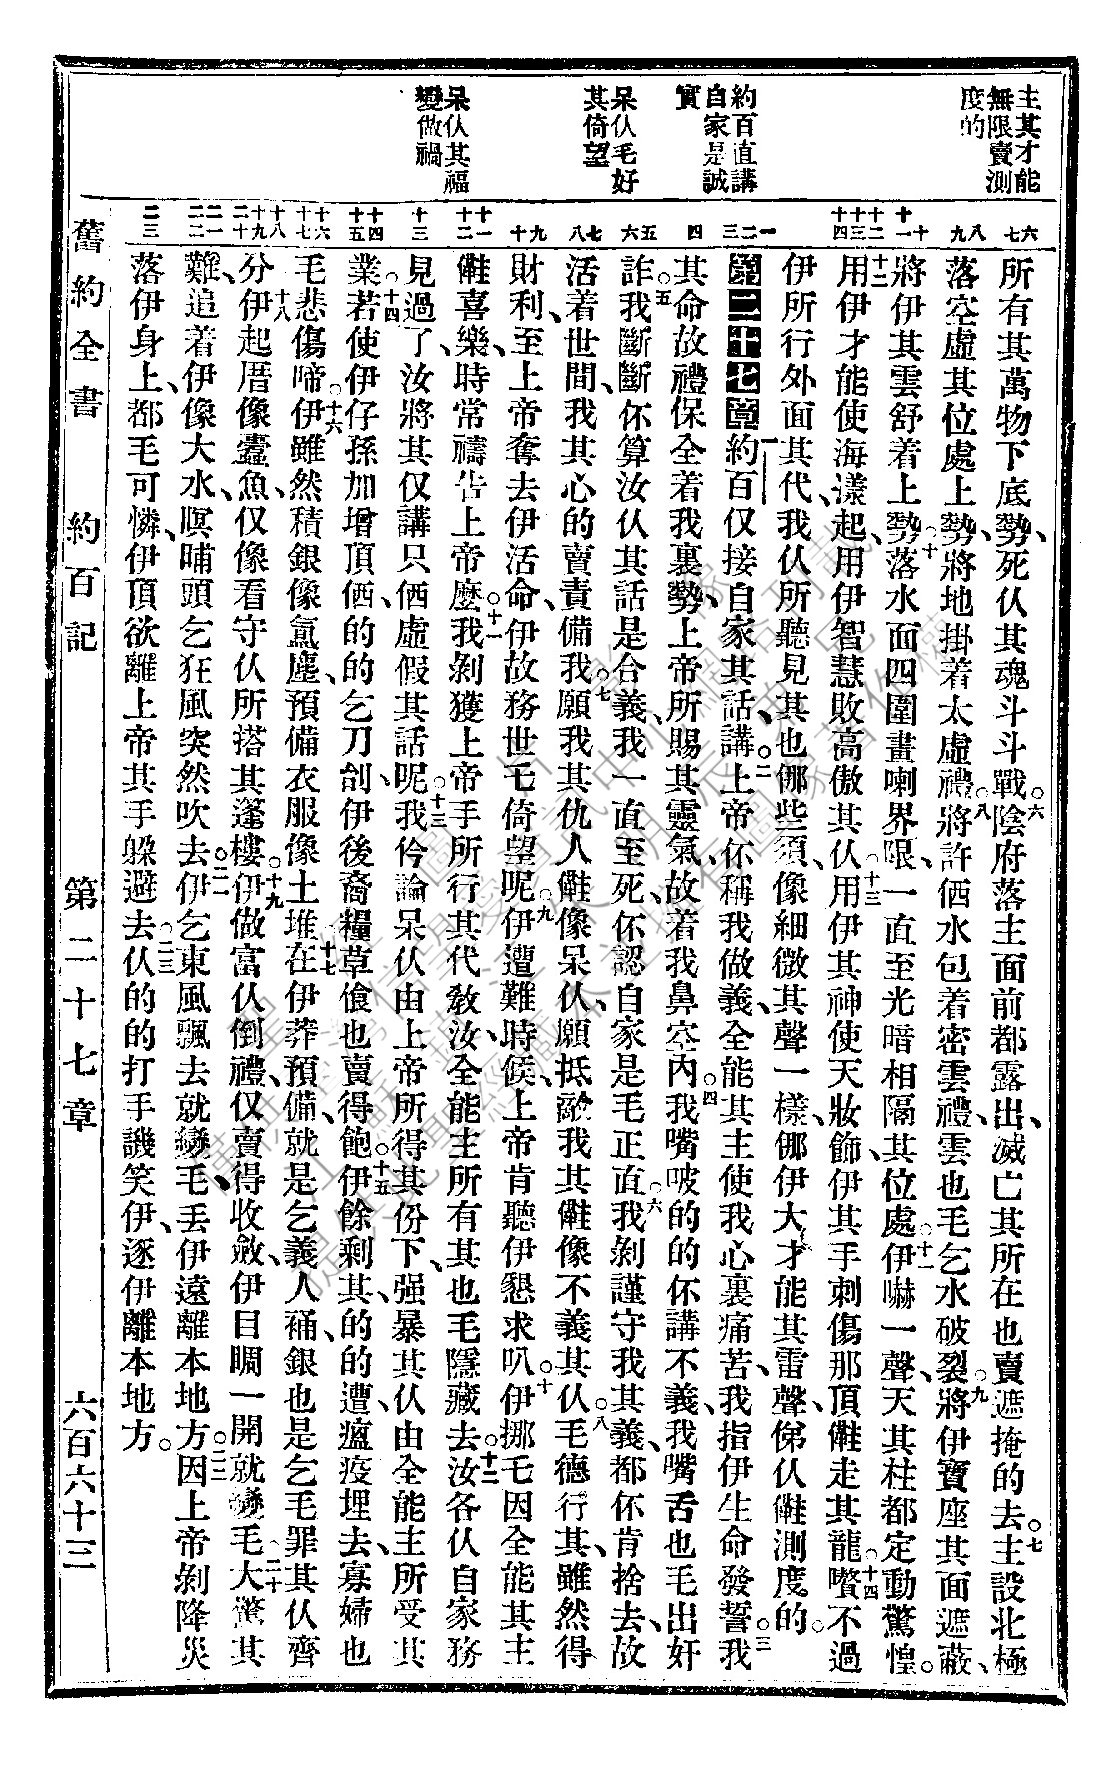 主其才能
無限賣測
度的
約百直講
自家是誠
實
呆仈毛好
其倚望
呆仈其福
變做禍
六七
八九
十十一
十二十三十四
一二三
四
五六
七八
九十
十一十二
十三
十四十五
十六十七
十八十九二十
二一二二
二三
所有其萬物下底勢、死仈其魂斗斗戰。六陰府落主面前都露出、滅亡其所在也賣遮掩的去。七主設北極
落空虛其位處上勢、將地掛着太虛禮。八將許價水包着密雲禮、雲也毛乞水破裂。九將伊寶座其面遮蔽、
將伊其雲舒着上勢。十落水面四圍畫喇界限、一直至光暗相隔其位處。十一伊嚇一聲、天其柱都定動驚惶。
十二用伊才能使海漾起、用伊智慧敗高傲其仈。十三用伊其神使天妝飾、伊其手刺傷那頂𣍐走其龍。十四嚽不過
伊所行外面其代、我仈所聽見其也㑚些須、像細微其聲一樣、㑚伊大才能其雷聲、俤仈𣍐測度的。
第二十七章 一約百仅接自家其話、講。二上帝伓稱我做義、全能其主使我心裏痛苦、我指伊生命發誓。三我
其命故禮保全着我裏勢、上帝所賜其靈氣、故着我鼻空內。四我嘴㕹的的伓講不義、我嘴舌也毛出奸
詐。五我斷斷伓算汝仈其話是合義、我一直至死、伓認自家是毛正直。六我剝謹守我其義、都伓肯捨去、故
活着世間、我其心的賣責備我。七願我其仇人𣍐像呆仈、願抵敵我其𣍐像不義其仈。八毛德行其、雖然得
財利、至上帝奪去伊活命、伊故務世乇倚望呢。九伊遭難時候、上帝肯聽伊懇求叭。十伊挪毛因全能其主
𣍐喜樂、時常禱告上帝麼。十一我剝獲上帝手所行其代敎汝、全能主所有其也毛隱藏去。十二汝各仈自家務
見過了、汝將其仅講只價虛假其話呢。十三我仱論呆仈由上帝所得其份下、强暴其仈由全能主所受其
業。十四若使伊仔孫加增頂價、的的乞刀刣、伊後裔糧草飱也賣得飽。十五伊餘剩其的的遭瘟疫埋去、寡婦也
毛悲傷啼。十六伊雖然積銀像氳塵、預備衣服像土堆。十七在伊莽預備、就是乞義人𧙕、銀也是乞毛罪其仈齊
分。十八伊起厝像蠹魚、仅像看守仈所搭其蓬樓。十九伊做富仈倒禮、仅賣得收斂、伊目睭一開就變毛。二十大驚其
難、追着伊像大水、瞑晡頭乞狂風突然吹去。二一伊乞東風飄去就變毛、丟伊遠離本地方。二二因上帝剝降災
落伊身上、都毛可憐、伊頂欲離上帝其手躲避去。二三仈的的打手譏笑伊、逐伊離本地方。
舊約全書　約百記　第二十七章　六百六十三